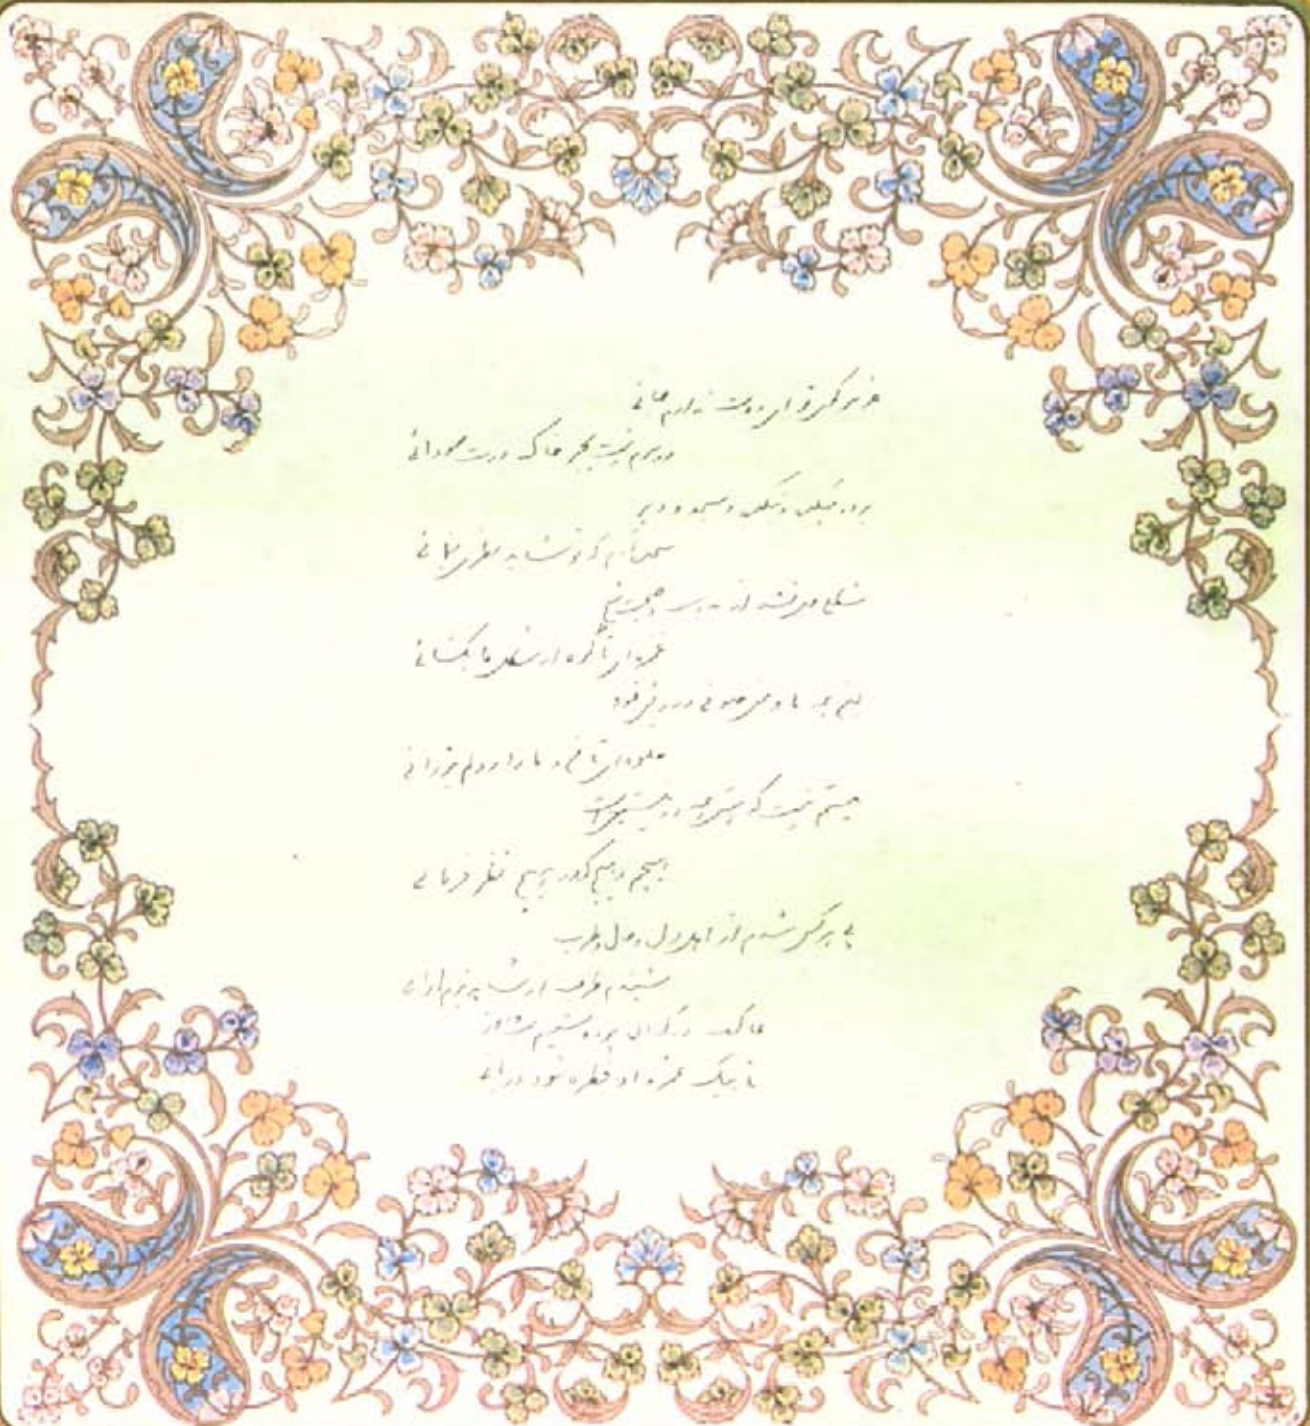 جز سر کوی تو ای دوست ندارم جائی
در سرم نیست بجز خاک درت سودائی
بر در میکده و بتکده و مسجد و دیر
سجده آرم که تو شاید نظری بنمائی
مشکلی حل نشد از مدرسه و صحبت شیخ
غمزه ای تا گره از مشکل ما بگشائی
این همه ما و منی صوفی درویش نمود
جلوه ای تا من و ما را ز دلم بزدائی
نیستم نیست که هستی همه در نیستی است
هیچم و هیچ که در هیچ نظر فرمائی
پی هر کس شدم از اهل دل و حال و طرب
نشنیدم طرب از شاهد بزم آرائی
عاکف درگه آن پرده نشینم شب و روز
تا بیک غمزه او قطره شود دریائی